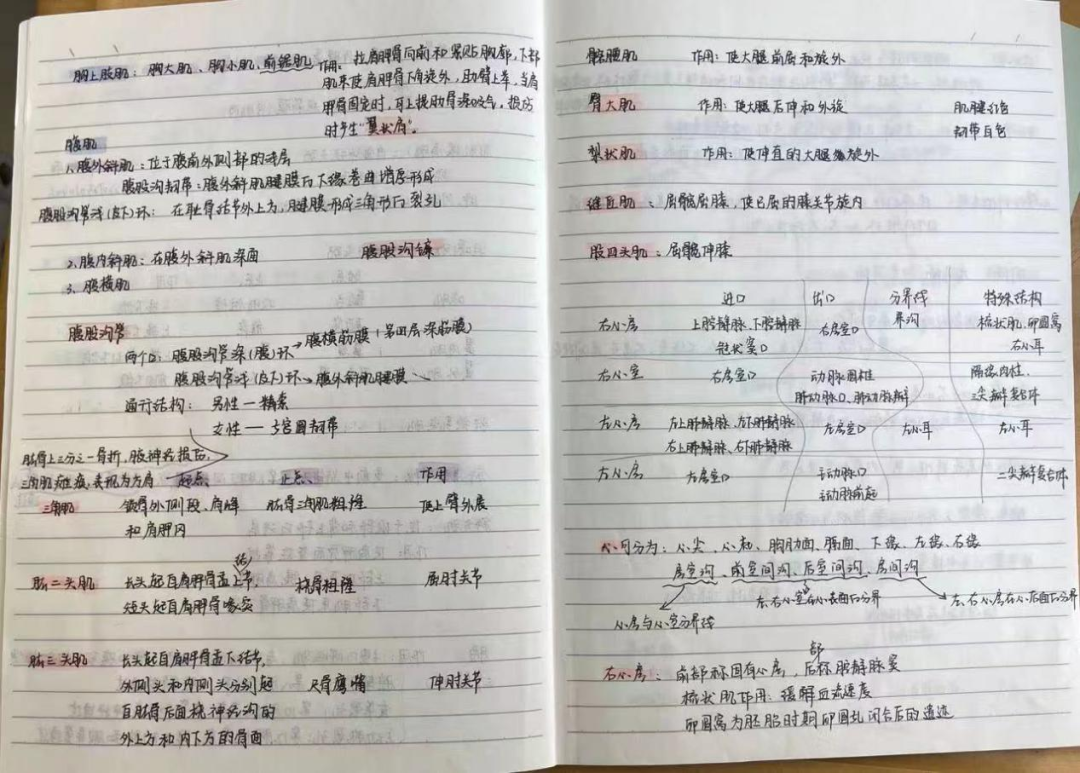 胸上肢肌：胸大肌、胸小肌、前锯肌 作用：拉肩胛骨向前和紧贴胸廓，下部
肌束使肩胛骨下角旋外，助臂上举，当肩
胛骨固定时，可上提肋骨深吸气，损伤
时产生"翼状肩"。
腹肌
1、腹外斜肌：位于腹前外侧部的浅层
腹股沟韧带：腹外斜肌腱膜下缘卷曲增厚形成
腹股沟管浅(皮下)环：在耻骨结节外上方，腱膜形成三角形裂孔
2、腹内斜肌：在腹外斜肌深面 腹股沟镰
3、腹横肌
腹股沟管
两个口：腹股沟管深(腹)环→腹横筋膜(第四层深筋膜)
腹股沟管浅(皮下)环→腹外斜肌腱膜
通行结构：男性—精索
女性—子宫圆韧带
肱骨上三分之一骨折，腋神经损伤，
三角肌瘫痪，表现为方肩 起点 止点 作用
三角肌 锁骨外侧段、肩峰 肱骨三角肌粗隆 使上臂外展
和肩胛冈
肱二头肌 长头起自肩胛骨盂上结节， 桡骨粗隆 屈肘关节
短头起自肩胛骨喙突
肱三头肌 长头起自肩胛骨盂下结节，
外侧头和内侧头分别起 尺骨鹰嘴 伸肘关节
自肱骨后面桡神经沟的
外上方和内下方的骨面
髂腰肌 作用：使大腿前屈和旋外
臀大肌 作用：使大腿后伸和外旋 肌腱
韧带
梨状肌 作用：使伸直的大腿旋外
缝匠肌：屈髋屈膝，使已屈的膝关节旋内
股四头肌：屈髋伸膝
进口 出口 分界线 特殊结构
右心房 上腔静脉、下腔静脉 右房室口 界沟 梳状肌、卵圆窝
冠状窦口 右心耳
右心室 右房室口 动脉圆锥 隔缘肉柱、
肺动脉口、肺动脉瓣 三尖瓣复合体
左心房 左上肺静脉、左下肺静脉 左房室口 左心耳 左心耳
右上肺静脉、右下肺静脉
左心房 左房室口 主动脉口 二尖瓣复合体
主动脉前庭
心可分为：心尖、心底、胸肋面、膈面、下缘、左缘、右缘
房室沟、前室间沟、后室间沟、房间沟
左、右心室在心表面的分界 左、右心房在心后面的分界
心房与心室分界线
右心房：前部称固有心房，后部称腔静脉窦
梳状肌作用：缓解血流速度
卵圆窝为胚胎时期卵圆孔闭合后的遗迹